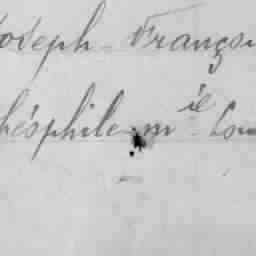 Joseph François
Théophile m ie Lou